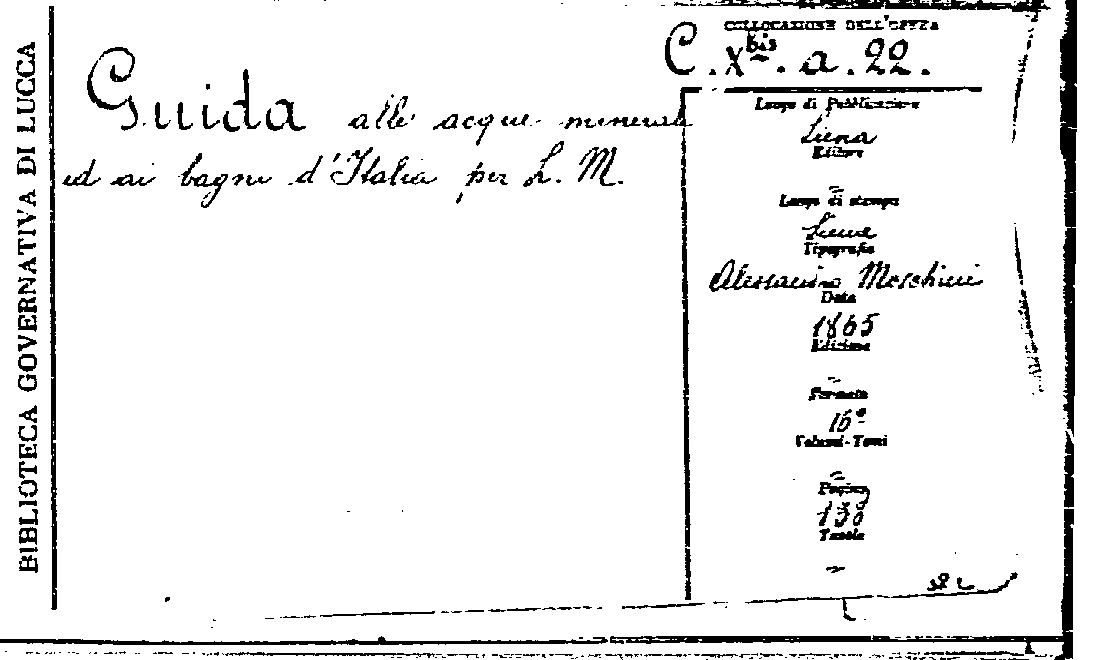 BIBLIOTECA GOVERNATIVA DI LUCCA
Guida alle acque minerali
ed ai bagni d'Italia per L. M.
COLLOCAZIONE DELL'OPERA
C. Xbis. a. 22.
Luogo di Pubblicazione
Siena
Editore
Luogo di stampa
Siena
Tipografia
Alessandro Moschini
Data
1865
Edizione
Formato
16°
Volumi-Tomi
Pagine
138
Tavole